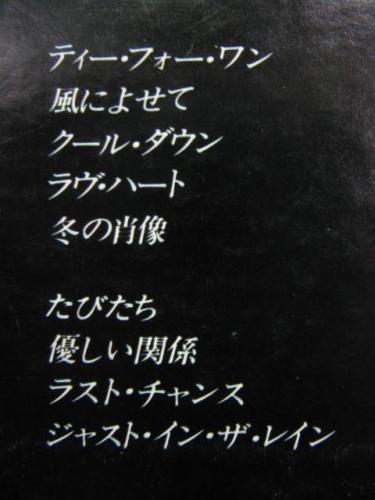 ティー・フォー・ワン
風によせて
クール・ダウン
ラヴ・ハート
冬の肖像
たびたち
優しい関係
ラスト・チャンス
ジャスト・イン・ザ・レイン